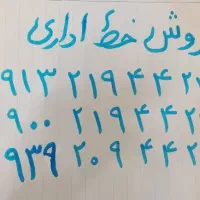 روش خط اداری
۹۱۳ ۲۱۹ ۴۴ ۲
۹۰۰ ۲۱۹ ۴۴ ۲
۹۳۹ ۲۰۹ ۴۴ ۲